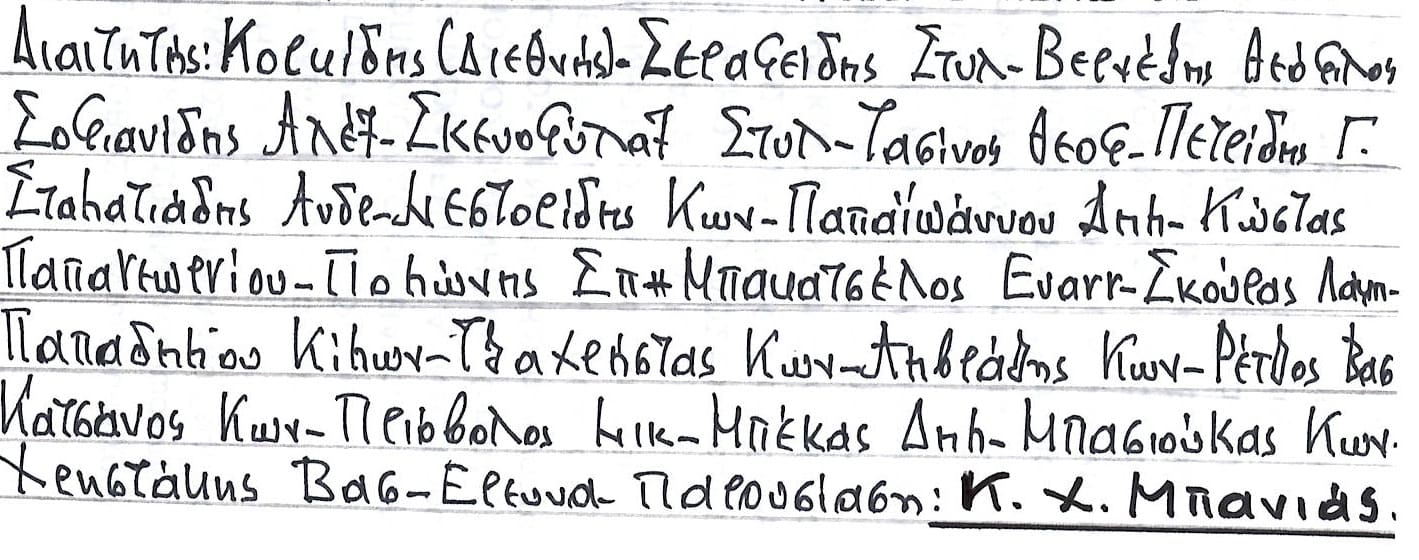 Διαιτητής: Κοεμίδης (Διεθνής)- Σεραφείδης Στυλ- Βεργέδης Θεόφιλος
Σοφιανίδης Αλέξ- Σκευοφύλαξ Στυλ- Τασίνος Θεοφ- Πετρίδης Γ.
Σταματιάδης Ανδρ- Νεστορίδης Κων- Παπαϊωάννου Δημ- Κώστας
Παπαγεωργίου- Πομώνης Σπ# Μπαματσέλος Ευαγγ- Σκούρας Λαμπ-
Παπαδημίου Κίμων- Τζαχρήστας Κων- Λημεράδης Κων- Ρέτσος Βασ
Κατσάνος Κων- Περίβολος Νικ- Μπέκας Δημ- Μπασιούκας Κων.
Χρηστάκης Βασ- Ερευνα- Παρουσίαση: Κ. Χ. Μπανιάς.